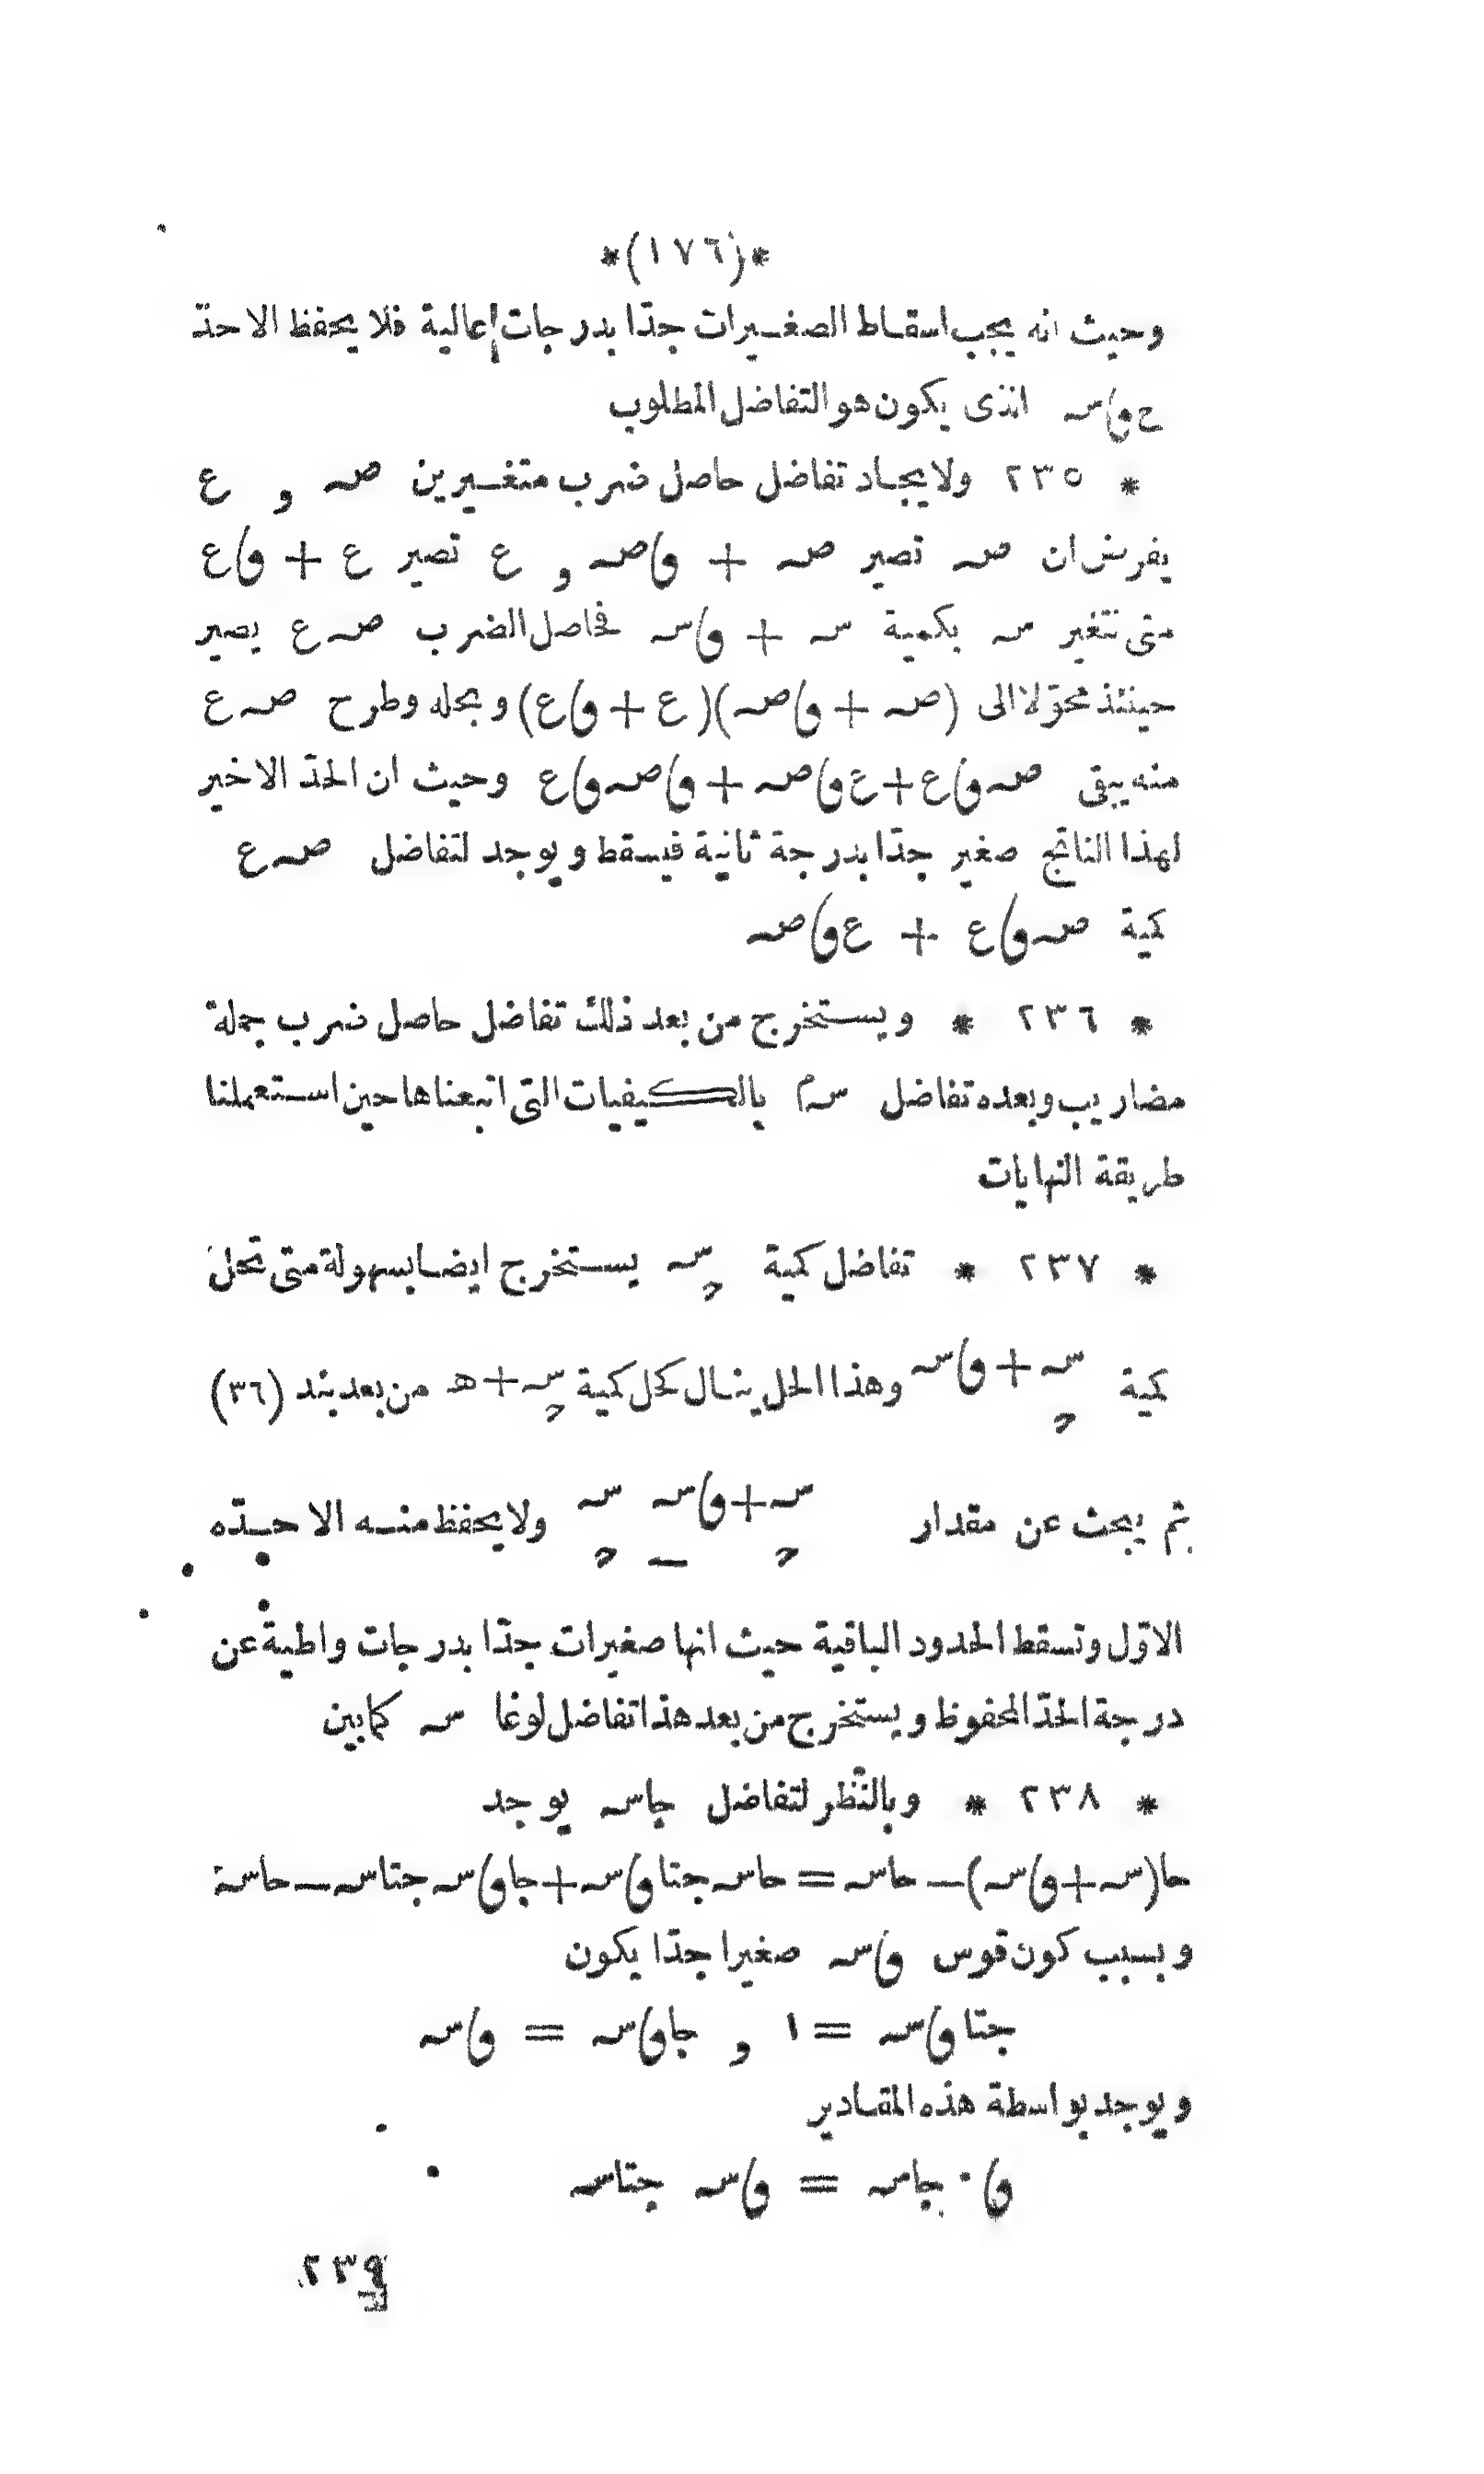 *(١٧٦)*
وحيث انه يجب اسقاط الصغيرات جدّا بدرجات عالية فلا يحفظ الا حدّ
ح ﻭ)سہ الذى يكون هو التفاضل المطلوب
* ٢٣٥ ولا يجاد تفاضل حاصل ضرب متغيرين صہ و ع
يفرض ان صہ تصير صہ + ﻭ)صہ و ع تصير ع + ﻭ)ع
متى تتغير سہ بكمية سہ + ﻭ)سہ فحاصل الضرب صہ ع يصير
حينئذ محوّلا الى (صہ + ﻭ)صہ)(ع + ﻭ)ع) وبحله وطرح صہ ع
منه يبقى صہ ﻭ)ع + ع ﻭ)صہ + ﻭ)صہ ﻭ)ع وحيث ان الحدّ الاخير
لهذا الناتج صغير جدّا بدرجة ثانية فيسقط ويوجد لتفاضل صہ ع
كمية صہ ﻭ)ع + ع ﻭ)صہ
* ٢٣٦ * ويستخرج من بعد ذلك تفاضل حاصل ضرب جملة
مضاريب وبعده تفاضل سہم بالكيفيات التى اتبعناها حين استعملنا
طريقة النهايات
* ٢٣٧ * تفاضل كمية حسہ يستخرج ايضا بسهولة متى تحل
كمية حسہ + ﻭ)سہ وهذا الحل ينال كحل كمية حسہ + هـ من بعد بند (٣٦)
ثم يبحث عن مقدار حسہ + ﻭ)سہ − حسہ ولا يحفظ منه الا حدّه
الاوّل وتسقط الحدود الباقية حيث انها صغيرات جدّا بدرجات واطية عن
درجة الحدّ المحفوظ ويستخرج من بعد هذا تفاضل لوغا سہ كما بين
* ٢٣٨ * وبالنظر لتفاضل جاسہ يوجد
حا(سہ + ﻭ)سہ) − حاسہ = حاسہ جتا ﻭ)سہ + جا ﻭ)سہ جتاسہ − حاسہ
وبسبب كون قوس ﻭ)سہ صغيرا جدّا يكون
جتا ﻭ)سہ = ١ و جا ﻭ)سہ = ﻭ)سہ
ويوجد بواسطة هذه المقادير
ﻭ) ٠ جاسہ = ﻭ)سہ جتاسہ
٢٣٩